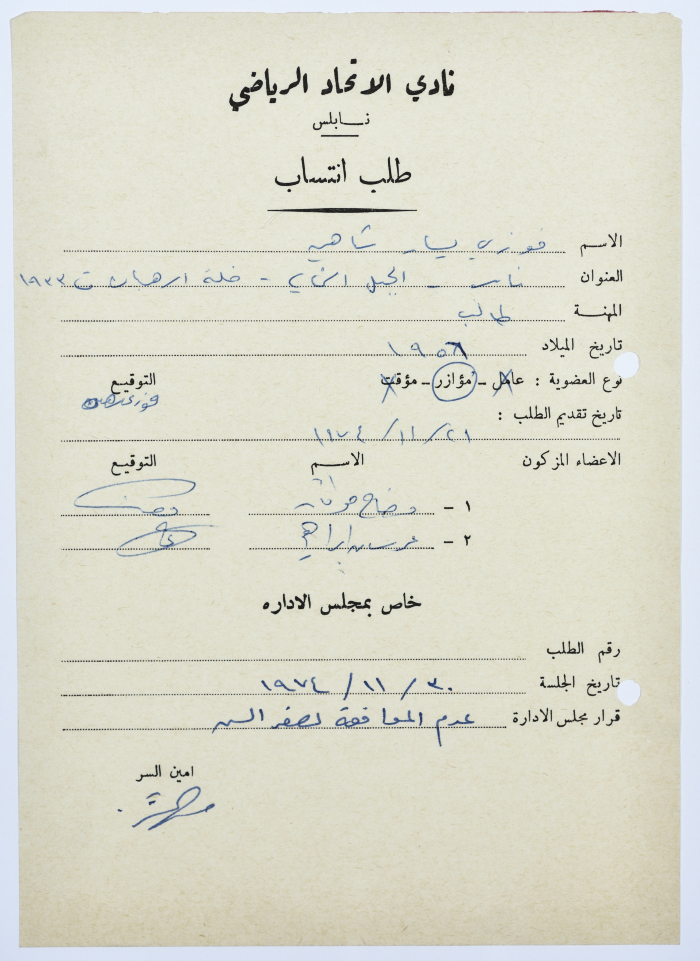 نادي الاتحاد الرياضي
نابلس
طلب انتساب
الاسم فوزي يسار شاهين
العنوان نابلس - الجبل الشمالي - خلة الرهبان ت ١٩٣٣
المهنة طالب
تاريخ الميلاد
نوع العضوية : عامل - مؤازر - مؤقت التوقيع
تاريخ تقديم الطلب :
٢١ / ١١ / ١٩٧٤
الاعضاء المزكون الاسم التوقيع
١ - وضاح
٢ - ابراهيم
خاص بمجلس الاداره
رقم الطلب
تاريخ الجلسة ٣٠ / ١١ / ١٩٧٤
قرار مجلس الادارة عدم الموافقة لصغر السن
امين السر